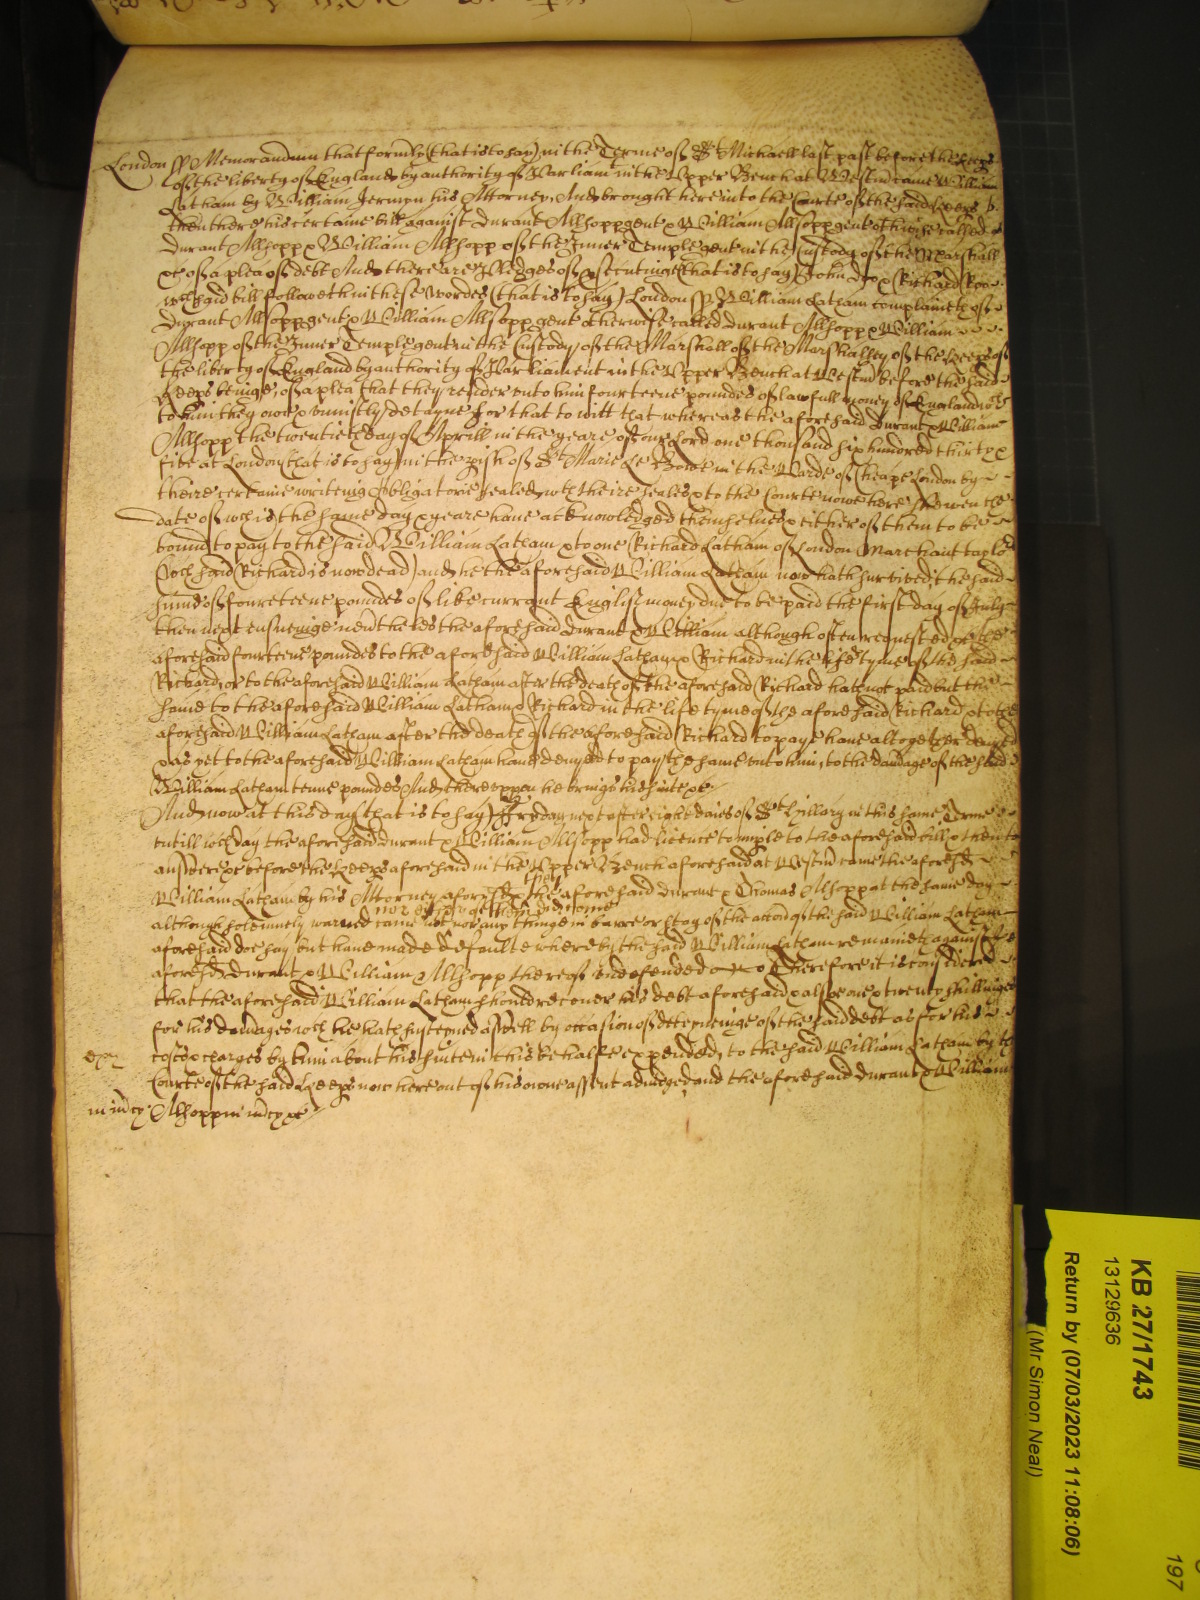 London ss Memorandum that formerly (that is to say) in the Terme of St Michaell last past before the keeps
of the liberty of England by authority of Parliam in the Upper Bench at Westm came William
Latham by William Jermyn his Attorney And brought here into the Courte of the said keeps
then there his certaine bill against Durant Allsopp gent & William Allsopp gent otherwise called
Durant Allsopp & William Allsopp of the Inner Temple gent in the Custody of the Marshall
&c of a plea of debt And there are Pledges of psecutinge (that is to say) John Doo & Richard Roo
wch said bill followeth in these wordes (that is to say) London ss William Latham complaineth of
Durant Allsopp gent & William Allsopp gent otherwise called Durant Allsopp & William
Allsopp of the Inner Temple gent in the Custody of the Marshall of the Marshalsey of the keeps of
the liberty of England by authority of Parliament in the Upper Bench at Westm before the said
keeps beinge, of a plea that they render unto him fourteene poundes of lawfull money of England wch
to him they owe & uniustly detayne For that to witt that whereas the aforesaid Durant & William
Allsopp the twentieth day of Aprill in the yeare of our Lord one thousand six hundred thirty &
five at London (that is to say) in the pish of St Marie Le Bowe in the Warde of Cheape London by
theire certaine writeing obligatorie sealed wth theire seales & to the Courte nowe here shewen the
date of wch is the same day & yeare have acknowledged themselves & either of them to be
bound to pay to the said William Latham & to one Richard Latham of London Marchant taylor
(wch said Richard is now dead) and he the aforesaid William Latham now hath survived the said
summe of fourteene poundes of like currant English money due to be paid the first day of July
then next ensueinge neverthelesse the aforesaid Durant & William although often requested &c the
aforesaid fourteene poundes to the aforesaid William Latham & Richard in the life tyme of the said
Richard, or to the aforesaid William Latham after the death of the aforesaid Richard hath not paid but the
same to the aforesaid William Latham & Richard in the life tyme of the aforesaid Richard & to the
aforesaid William Latham after the death of the aforesaid Richard to pay have altogether denyed
& as yet to the aforesaid William Latham have denyed to pay the same unto him, to the damage of the said
William Latham tenne poundes And thereuppon he brings his suite &c
And now at this day (that is to say) Fryday next after eight daies of St Hillary in this same Terme
untill wch day the aforesaid Durant & William Allsopp had licence to imple to the aforesaid bill & then to
answere &c before the keeps aforesaid in the Upper Bench aforesaid at Westm came the aforesd
William Latham by his Attorney aforesd & the aforesaid Durant & Thomas Allsopp at the same day
nor either of them did come
although solemnely warned came not nor any thinge in barre or stay of the accon of the said William Latham
aforesaid doe say but have made default wherby the said William Latham remaineth against the
aforesd Durant & William Allsopp thereof undefended Therefore it is considered
that the aforesaid William Latham should recover his debt aforesaid & alsoe one & twenty shillinges
for his damages wch he hath susteyned aswell by occasion of deteyneinge of the said debt as for his
costs & charges by him about his suite in this behalfe expended, to the said William Latham by the
Courte of the said keeps now here out of his owne assent adiudged and the aforesaid Durant & William
in mcy Allsopp in mcy &c
KB 27/1743
13129636
Return by (07/03/2023 11:08:06)
(Mr Simon Neal)
197